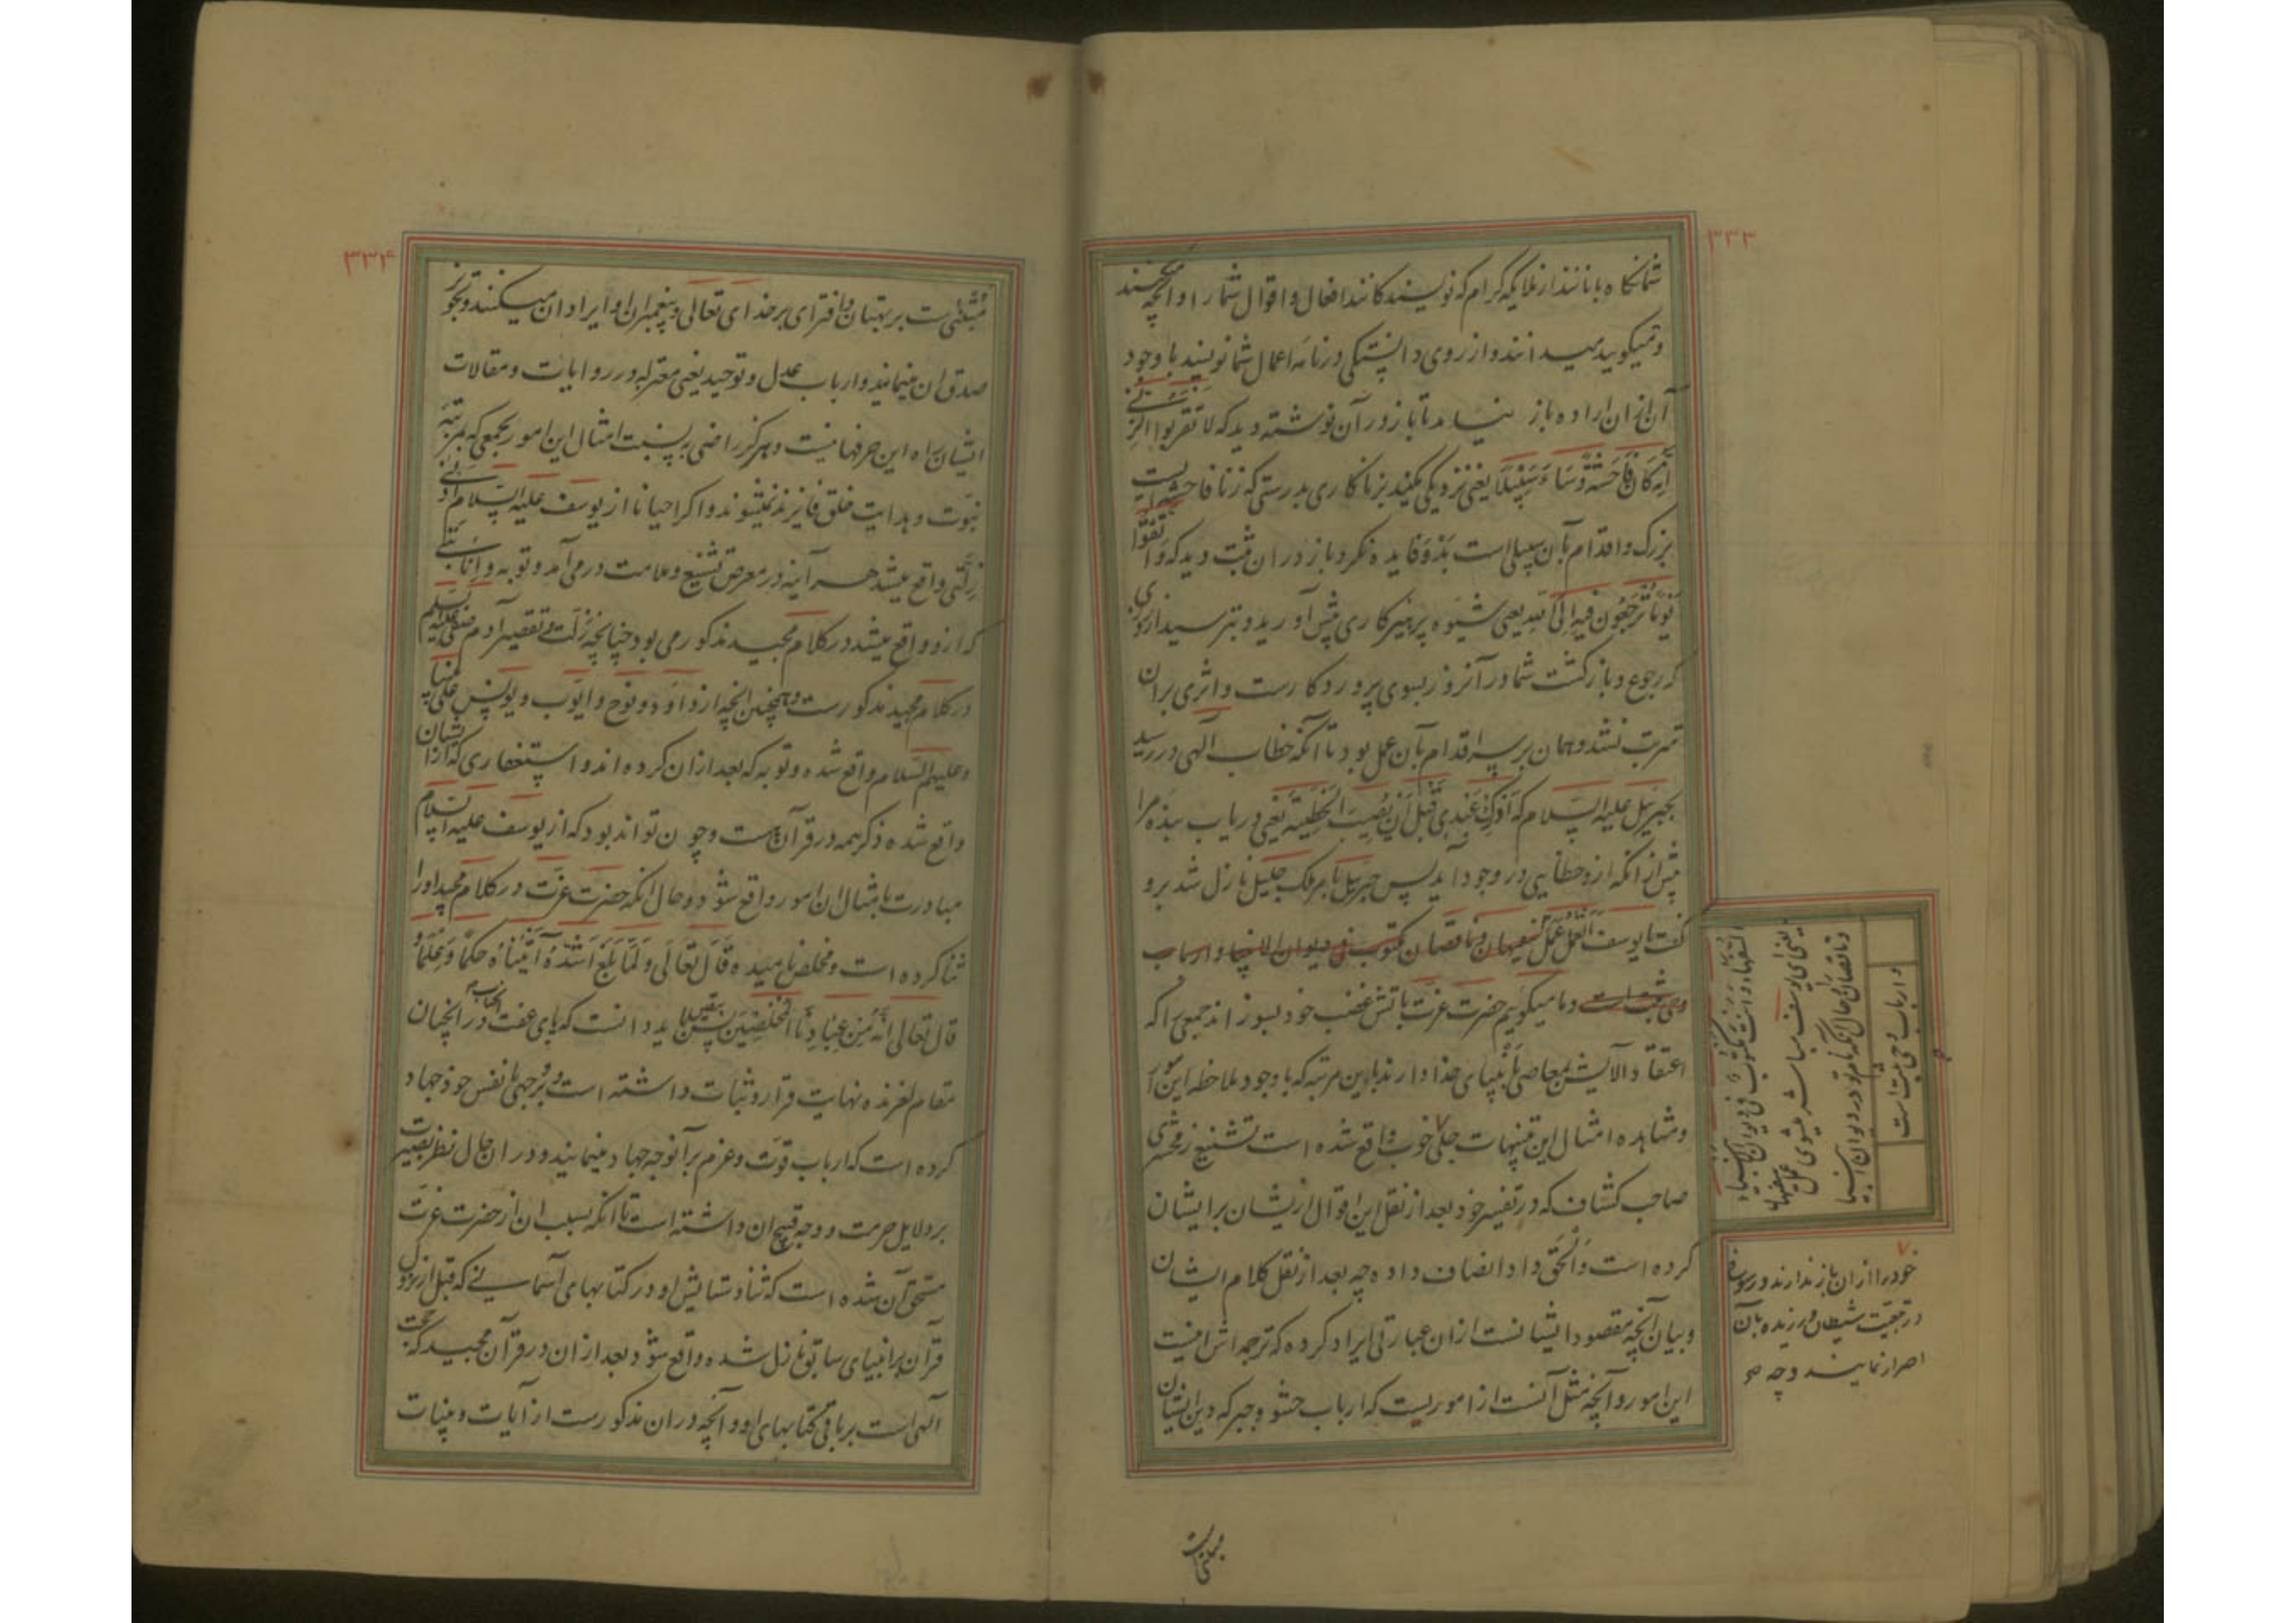 ۳۳۳
شما نگاه بانانند از ملایکه کرام که نویسندگانند افعال و اقوال شما را و آنچه میکنید
و میگویید میدانند و از روی دانستگی در نامه اعمال شما نویسند با وجود
آن از ان اراده باز نیامد تا باز در آن نوشته دید که لا تقربوا الزنی
انه کان فاحشة و ساء سبیلا یعنی نزدیکی مکنید بزناکاری بدرستی که زنا فاحشه ایست
بزرگ و اقدام بآن سبیلی است بد و فایده نکرد و باز در ان ثبت دید که و اتقوا
یوما ترجعون فیه الی الله یعنی شیوه پرهیزکاری پیش آورید و بترسید از روزی
که رجوع و بازگشت شما در آنروز بسوی پروردگارست و اثری بران
مترتب نشد و همان بر سر اقدام بآن عمل بود تا آنکه خطاب آلهی در رسید
بجبریل علیه السلام که ادرک عبدی قبل ان یصیب الخطیئة یعنی دریاب بنده مرا
پیش از انکه ازو خطایی در وجود آید پس جبریل بامر ملک جلیل نازل شد برو
گفت یا یوسف اتعمل عمل السفهاء و انت مکتوب فی دیوان الانبیاء
و ما میگوییم حضرت عزت باتش غضب خود بسوزاند جمعی را که
اعتقاد آلایش بمعاصی بانبیای خدا دارند باین مرتبه که با وجود ملاحظه این امور
و مشاهده امثال این تنبیهات جلی خوب واقع شده است تشنیع زمخشری
صاحب کشاف که در تفسیر خود بعد از نقل این اقوال ازیشان بر ایشان
کرده است و الحق داد انصاف داده چه بعد از نقل کلام ایشان
و بیان آنچه مقصود ایشانست ازان عبارتی ایراد کرده که ترجمه اش اینست
این امور و آنچه مثل آنست از اموریست که ارباب حشو و جبر که دین ایشان
السفهاء و انت مکتوب فی دیوان الانبیاء
یعنی ای یوسف مباشر میشوی عمل سفیهان
و ناقصان حال آنکه نام تو در دیوان انبیا
و ارباب وحی ثبت است
خود را ازان باز ندارند و رسوخ
در تبعیت شیطان ورزیده بآن
اصرار نمایند و چه
مبتنی است
۳۳۴
مبتنی ست بر بهتان و افترای بر خدای تعالی و پیغمبران او ایراد ان میکنند و تجویز
صدق ان مینمایند و ارباب عدل و توحید یعنی معتزله و روایات و مقالات
ایشان براه این حرفها نیست و هرگز راضی بر نسبت امثال این امور بجمعی که بمرتبه
نبوت و هدایت خلق فایزند نمیشوند و اگر احیانا از یوسف علیه السلام ادنی
زلتی واقع میشد هر آینه در معرض تشنیع و ملامت در می آمد و توبه و انابتی
که ازو واقع میشد در کلام مجید مذکور می بود چنانچه زلت و تقصیر آدم صفی علیه السلم
در کلام مجید مذکورست و همچنین آنچه از داوود و نوح و ایوب و یونس علی نبینا
و علیهم السلام واقع شده و توبه که بعد ازان کرده اند و استغفاری که ازیشان
واقع شده ذکر همه در قرآن هست و چون تواند بود که از یوسف علیه السلام
مبادرت بامثال ان امور واقع شود و حال آنکه حضرت عزت در کلام مجید او را
ثنا کرده است و مخلص نامیده قال تعالی و لما بلغ اشده آتیناه حکما و علما و
قال تعالی انه من عبادنا المخلصین پس بیقین باید دانست که پای عفت آنجناب در آنچنان
مقام لغزنده نهایت قرار و ثبات داشته است و بر وجهی با نفس خود جهاد
کرده است که ارباب قوت و عزم بر آنوجه جهاد مینمایند و در ان حال نظر بصیرت
بر دلایل حرمت و وجه قبیح ان داشته است تا آنکه بسبب ان از حضرت عزت
مستحق آن شده است که ثنا و ستایش او در کتابهای آسمانی که قبل از نزول
قرآن بر انبیای سابق نازل شده واقع شود بعد ازان در قرآن مجید که حجت
آلهی است بر باقی کتابهای او و آنچه در ان مذکورست از آیات و بینات